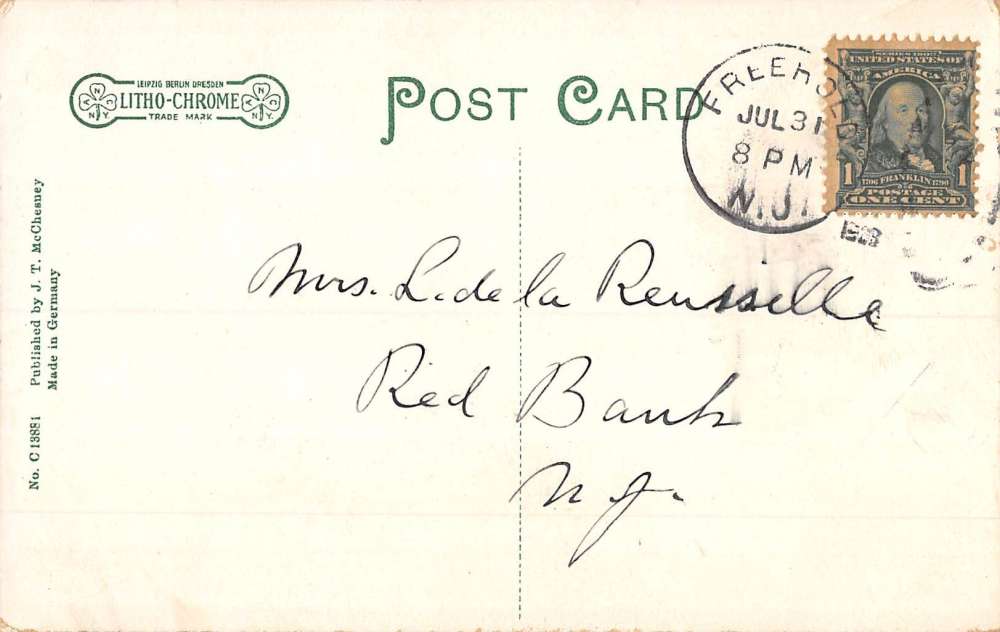 LEIPZIG BERLIN DRESDEN
LITHO-CHROME
TRADE MARK
N.Y.
POST CARD
FREEHOLD
JUL 31
8 PM
N.J.
SERIES 1902
UNITED STATES OF
AMERICA
1706 FRANKLIN 1790
1 POSTAGE 1
ONE CENT
Mrs. L. de la Reussille
Red Bank
N. J.
No. C 13881 Published by J. T. McChesney
Made in Germany